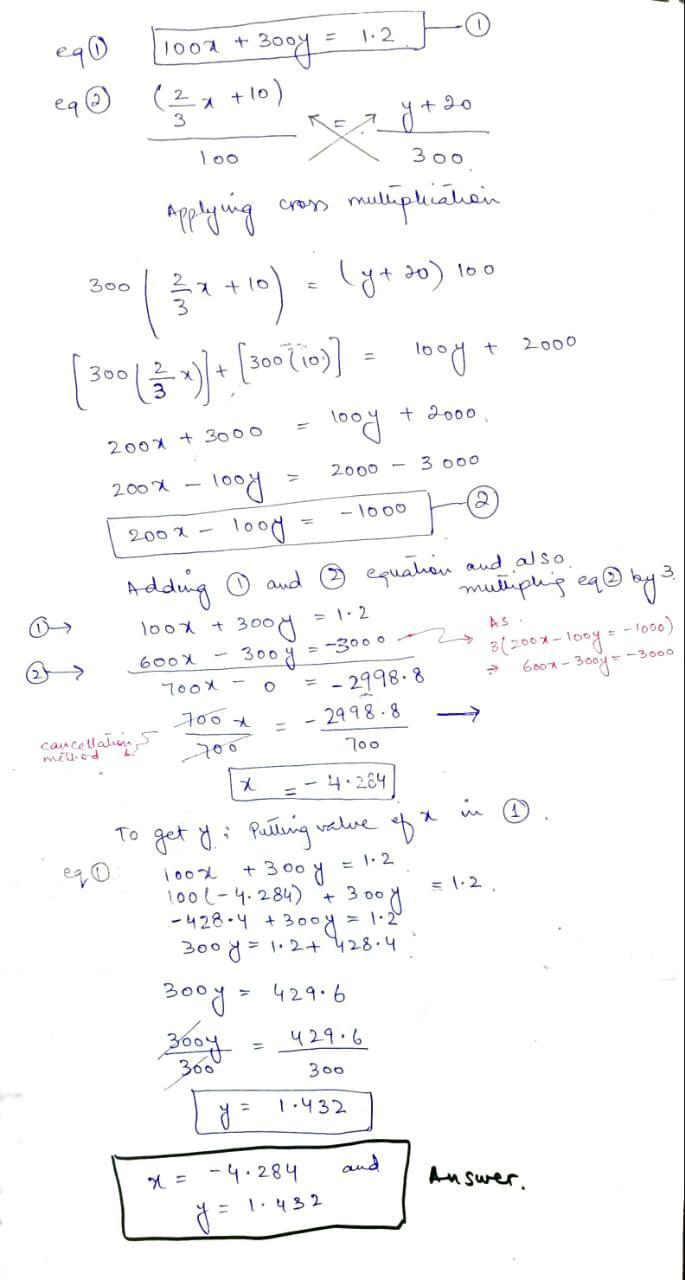 eq ① 100x + 300y = 1.2 ①
eq ② (2/3 x + 10)/100 = (y + 20)/300
Applying cross multiplication
300 (2/3 x + 10) = (y + 20) 100
[300 (2/3 x)] + [300 (10)] = 100y + 2000
200x + 3000 = 100y + 2000.
200x - 100y = 2000 - 3000
200x - 100y = -1000 ②
Adding ① and ② equation and also
multipling eq ② by 3.
① → 100x + 300y = 1.2
② → 600x - 300y = -3000
As.
3(200x - 100y = -1000)
⇒ 600x - 300y = -3000
700x - 0 = -2998.8
cancellation method
700x/700 = -2998.8/700 →
x = -4.284
To get y ; Putting value of x in ①.
eq ① 100x + 300y = 1.2
100(-4.284) + 300y = 1.2.
-428.4 + 300y = 1.2
300y = 1.2 + 428.4
300y = 429.6
300y/300 = 429.6/300
y = 1.432
x = -4.284 and
y = 1.432
Answer.